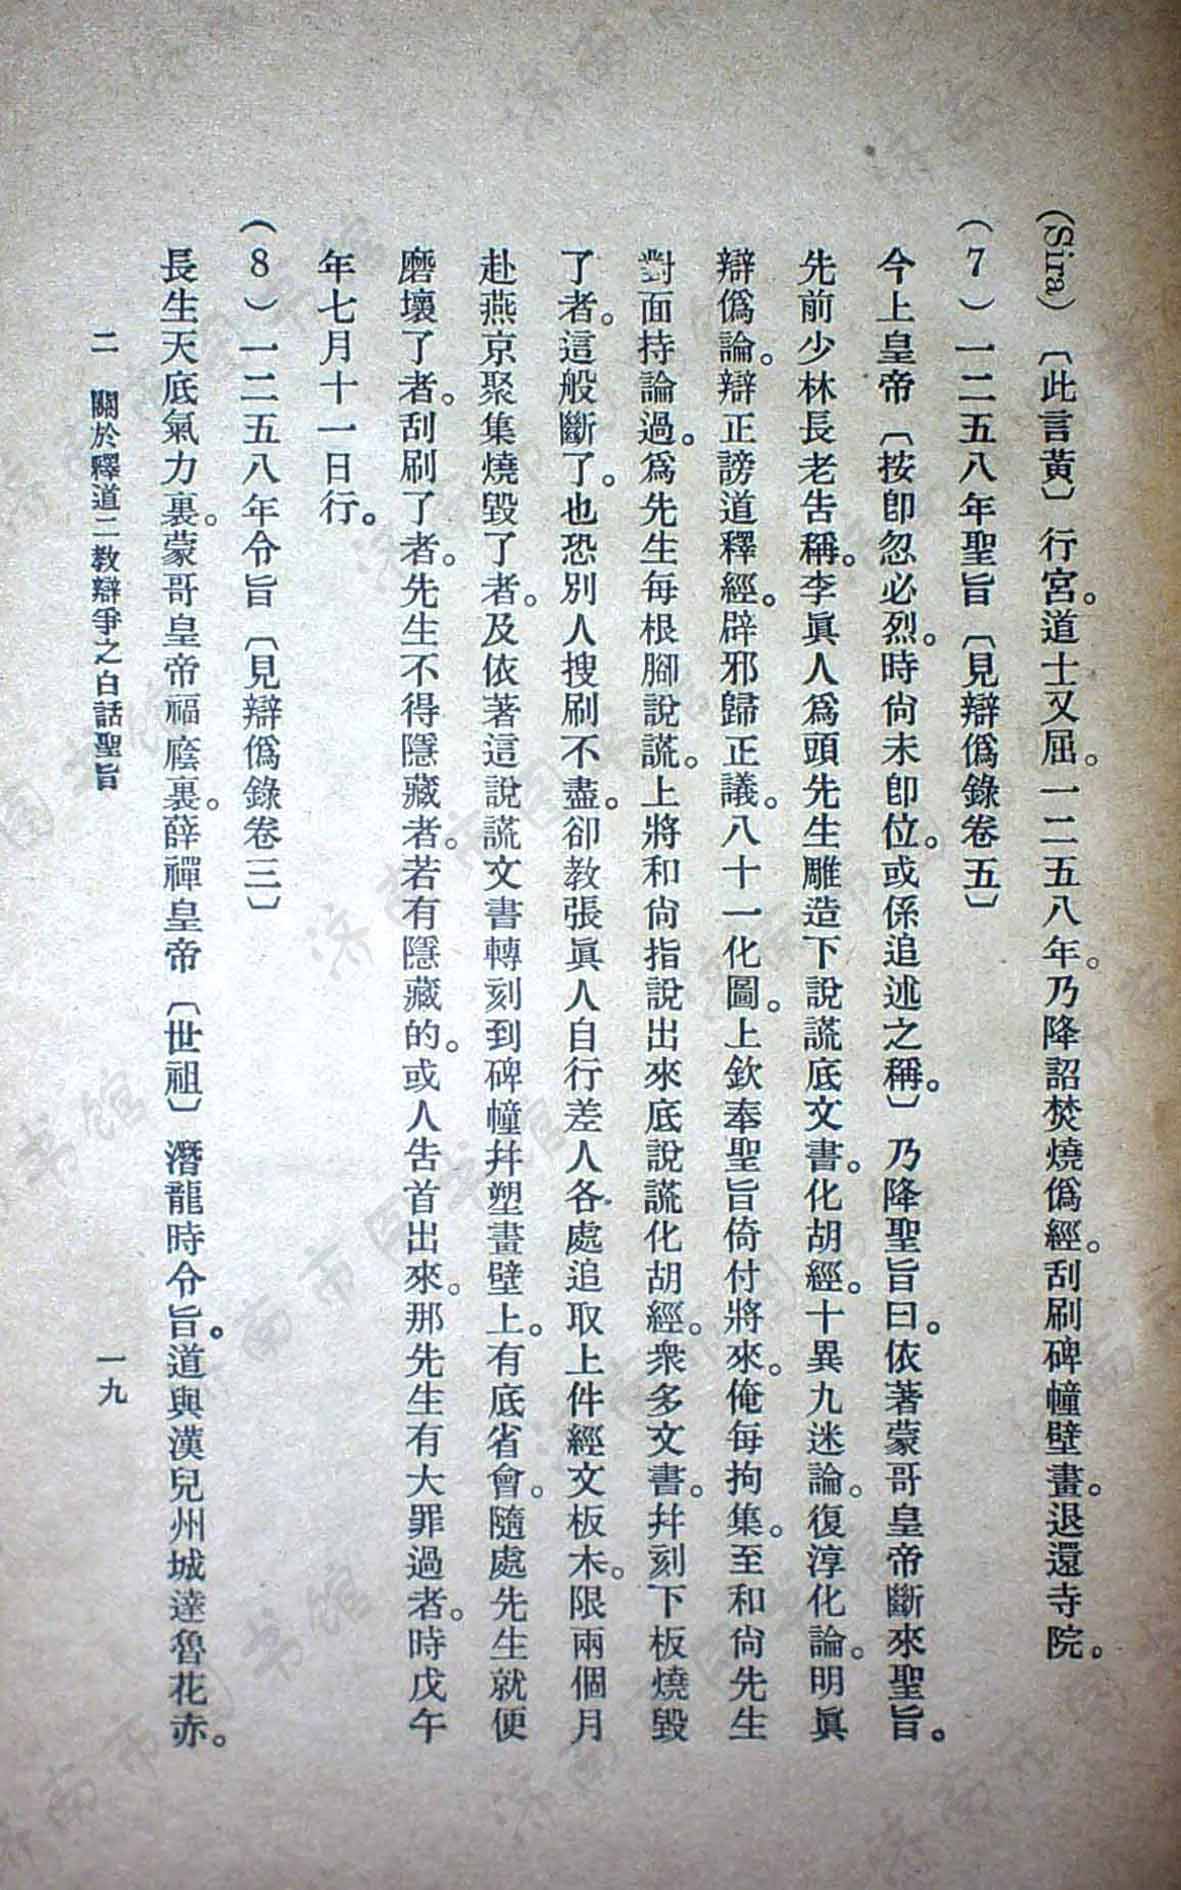 (Sira)〔此言黃〕行宮。道士又屈。一二五八年。乃降詔焚燒僞經。刮刷碑幢壁畫。退還寺院。
(7)一二五八年聖旨〔見辯僞錄卷五〕
今上皇帝〔按卽忽必烈。時尙未卽位。或係追述之稱。〕乃降聖旨曰。依著蒙哥皇帝斷來聖旨。
先前少林長老告稱。李眞人爲頭先生雕造下說謊底文書。化胡經。十異九迷論。復淳化論。明眞
辯僞論。辯正謗道釋經。辟邪歸正議。八十一化圖。上欽奉聖旨倚付將來。俺每拘集。至和尙先生
對面持論過。爲先生每根腳說謊。上將和尙指說出來底說謊化胡經。衆多文書。幷刻下板燒毀
了者。這般斷了。也恐別人搜刷不盡。卻教張眞人自行差人各處追取上件經文板木。限兩個月
赴燕京聚集燒毀了者。及依著這說謊文書轉刻到碑幢幷塑畫壁上。有底省會。隨處先生就便
磨壞了者。刮刷了者。先生不得隱藏者。若有隱藏的。或人告首出來。那先生有大罪過者。時戊午
年七月十一日行。
(8)一二五八年令旨〔見辯僞錄卷三〕
長生天底氣力裏。蒙哥皇帝福廕裏。薛禪皇帝〔世祖〕潛龍時令旨。道與漢兒州城達魯花赤。
二 關於釋道二教辯爭之白話聖旨 一九
济南市图书馆